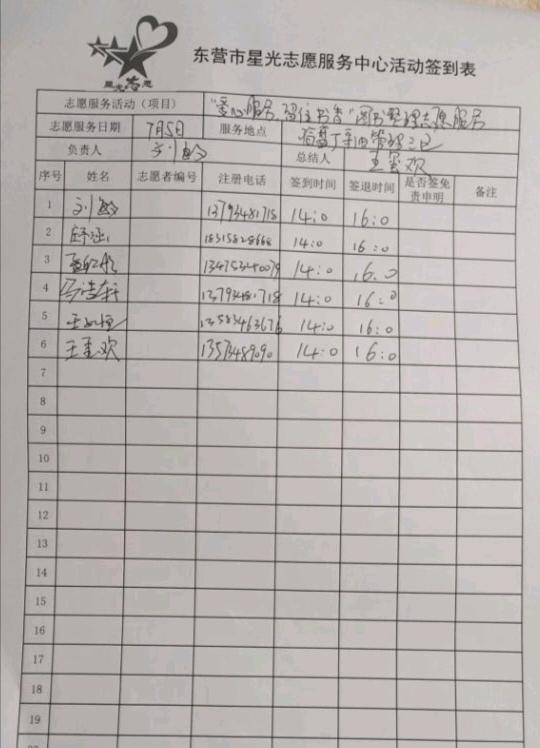 星光志愿
东营市星光志愿服务中心活动签到表
志愿服务活动（项目） "爱心服务,留住书香"图书整理志愿服务
志愿服务日期 7月5日 服务地点
负责人 刘 总结人 王
序号 姓名 志愿者编号 注册电话 签到时间 签退时间 是否签免责申明 备注
1 刘 13793481718 14:0 16:0
2 18315828668 14:0 16:0
3 13475340079 14:0 16:0
4 13793481718 14:0 16:0
5 13583463676 14:0 16:0
6 王 欢 13573489090 14:0 16:0
7
8
9
10
11
12
13
14
15
16
17
18
19